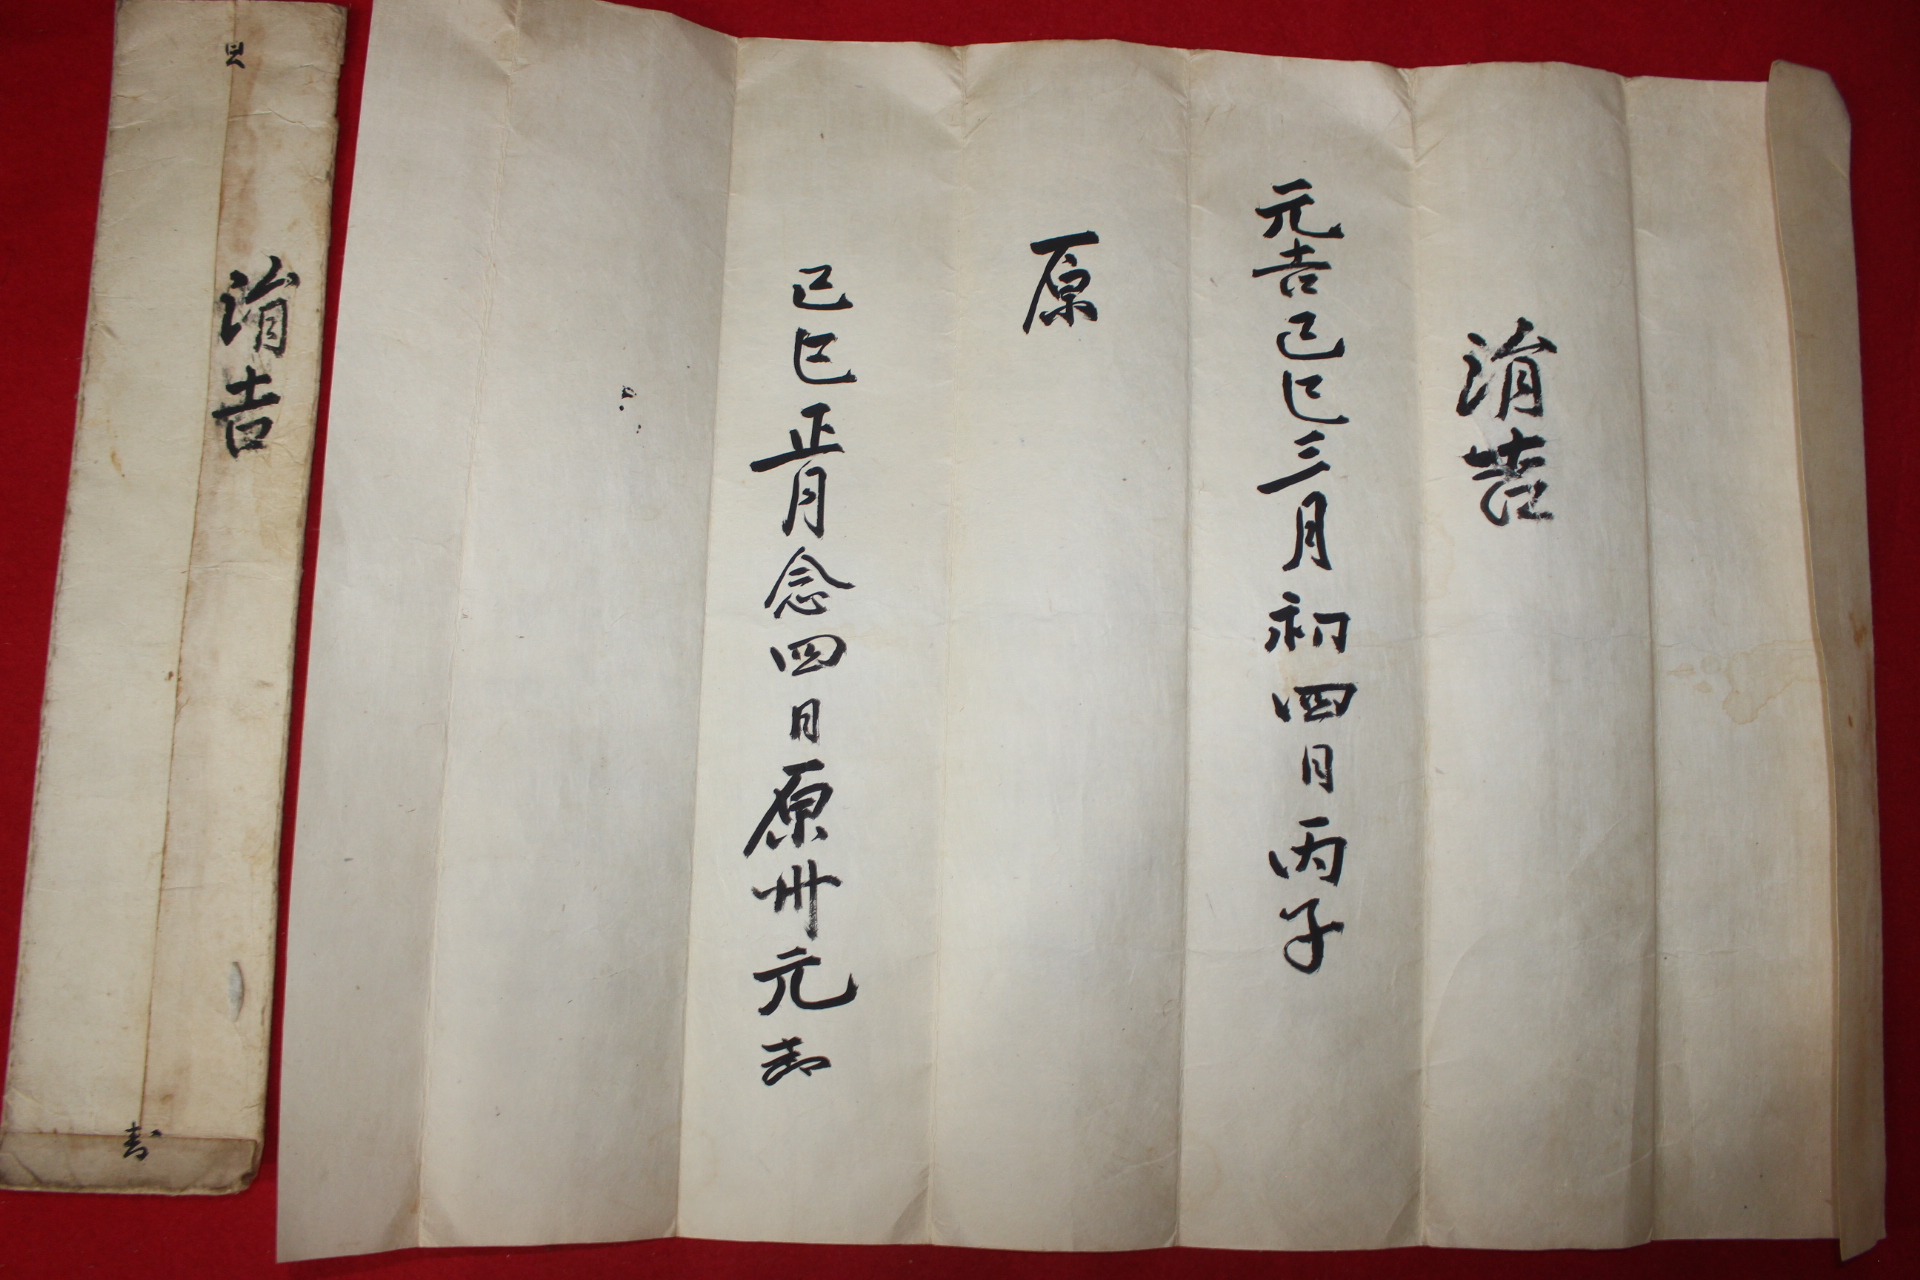 涓吉
元吉己巳三月初四日丙子
原
己巳正月念四日原州元
涓吉
封